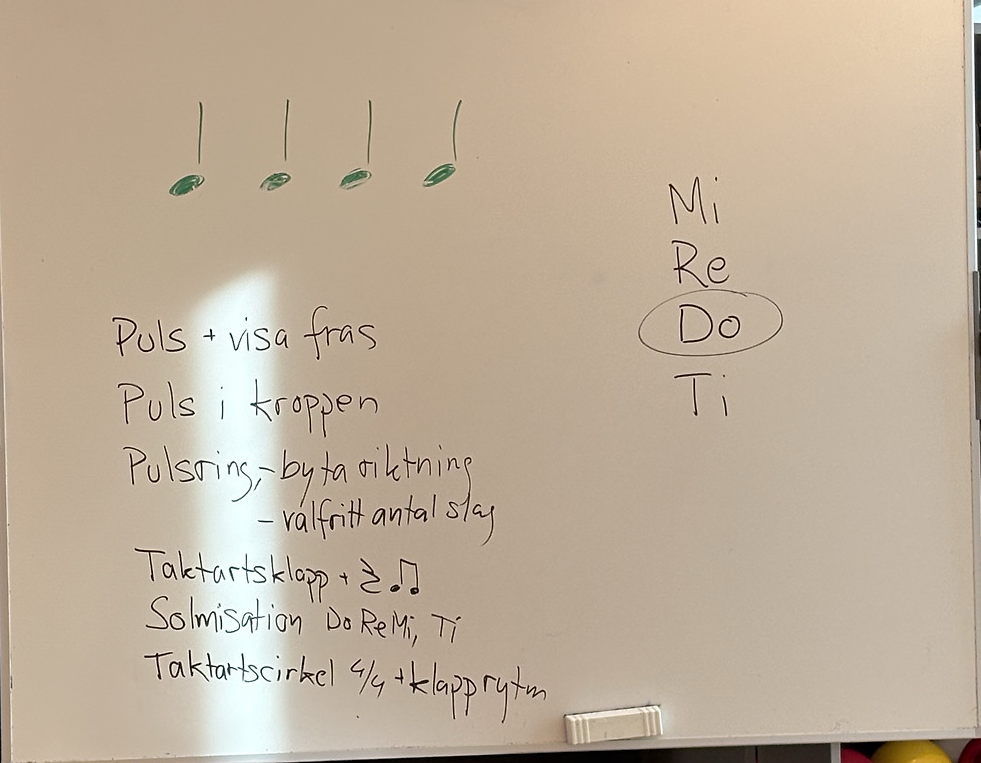 Puls + visa fras
Puls i kroppen
Pulsring, - byta riktning
- valfritt antal slag
Taktartsklapp + 𝄽 ♫
Solmisation Do Re Mi, Ti
Taktartscirkel 4/4 + klapp rytm
Mi
Re
Do
Ti